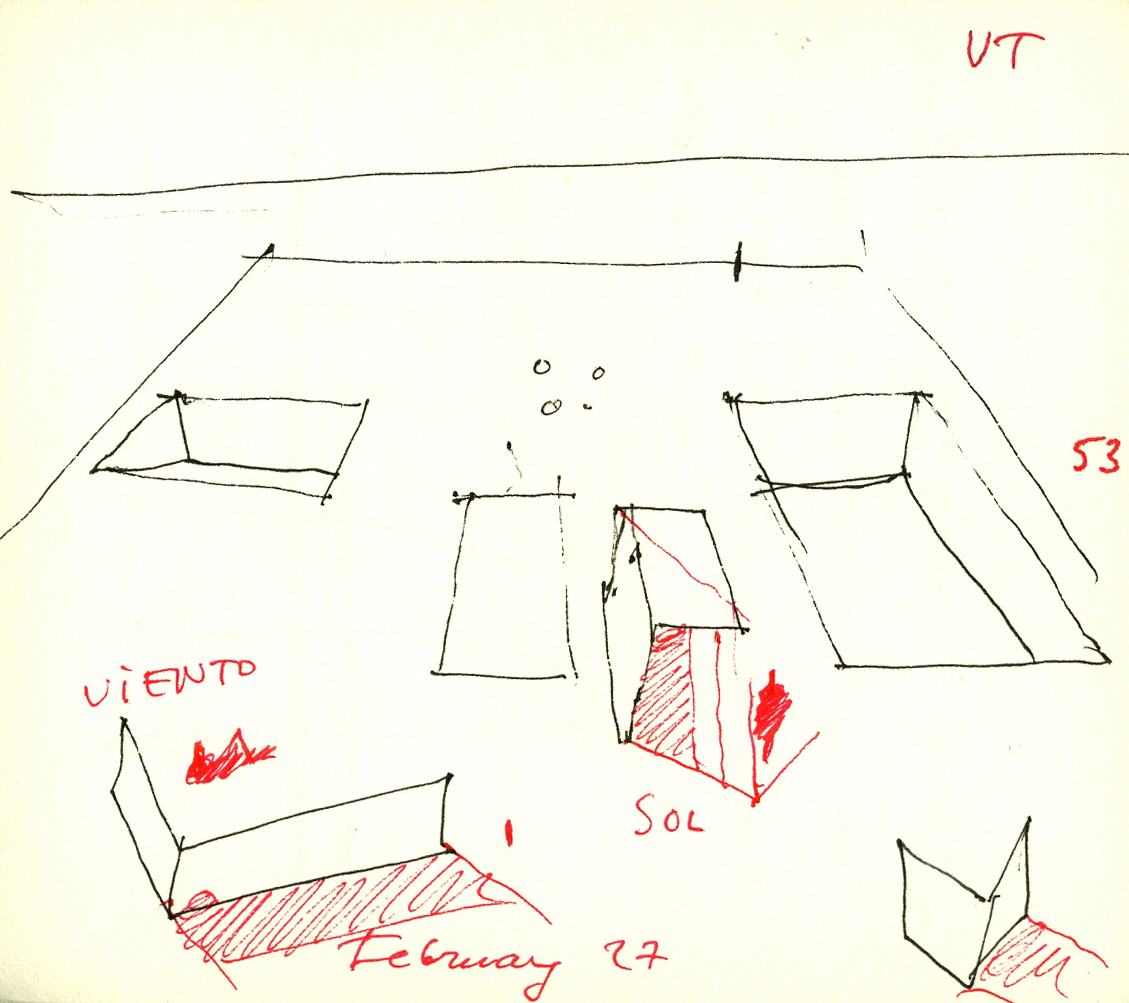 UT
53
VIENTO
SOL
February 27